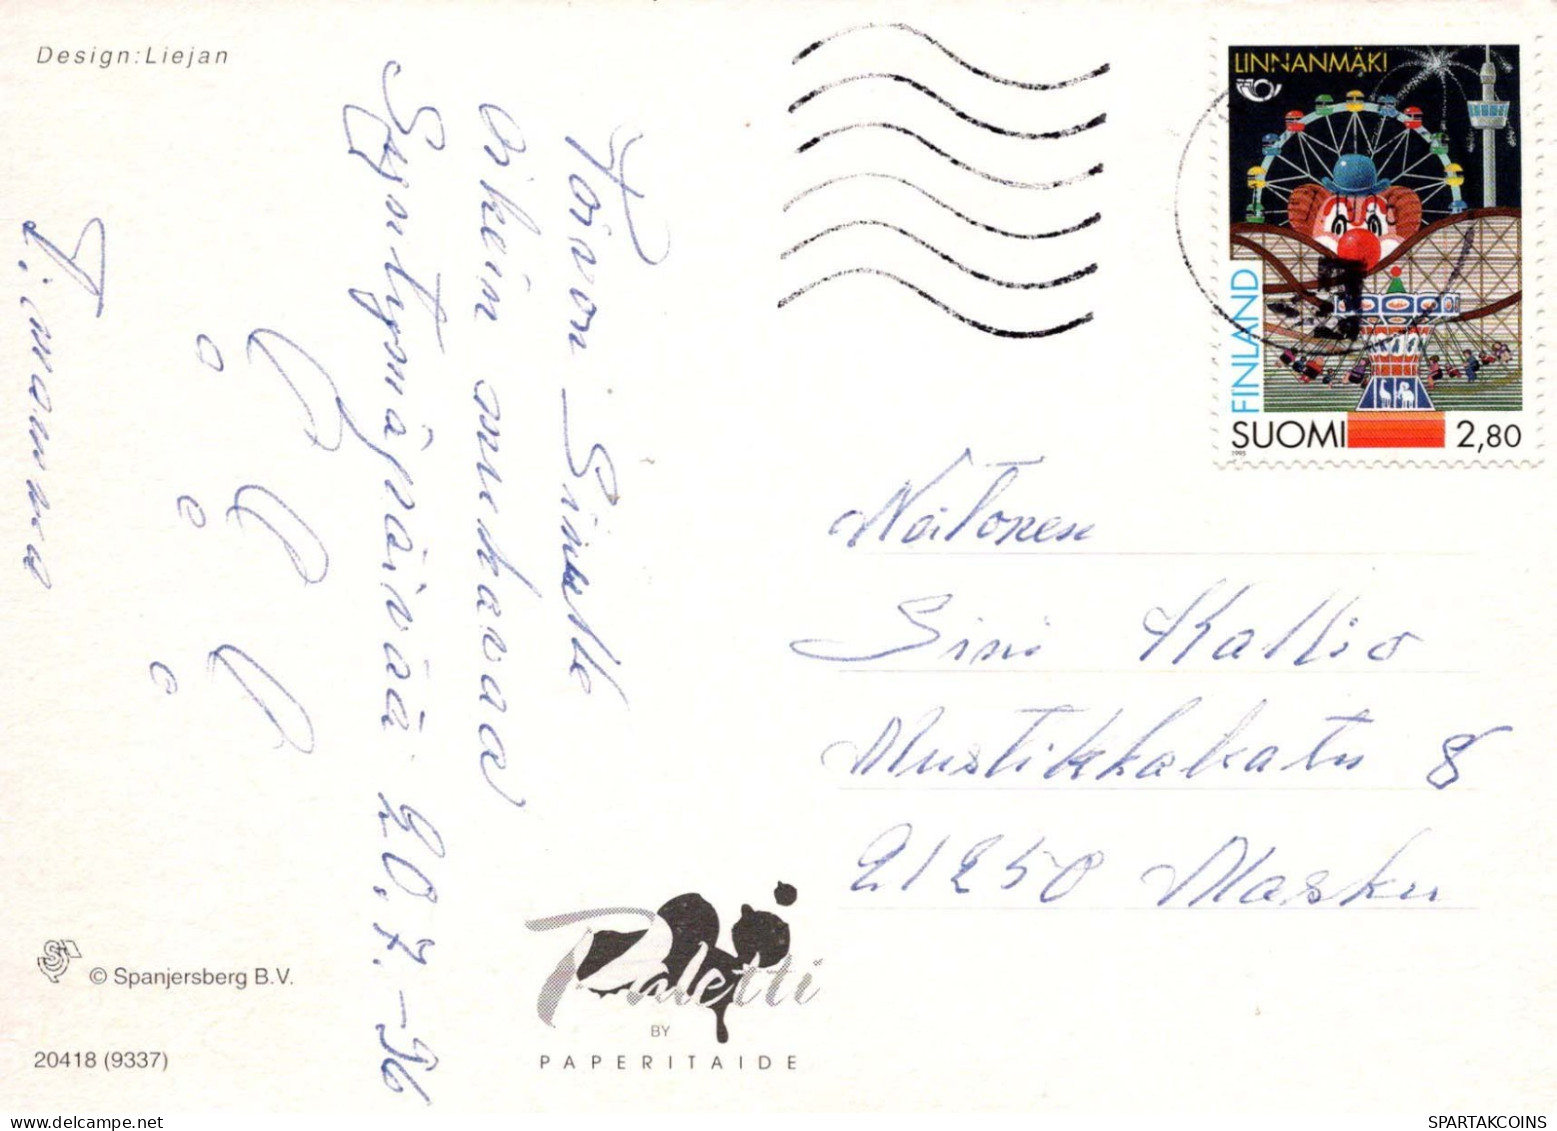 Design:Liejan
Toivon Sinulle
oikein mukavaa
Syntymäpäivää 20.7.-96
T. mamma
LINNANMÄKI
FINLAND
SUOMI 2,80
1995
Neitonen
Sini Kallio
Mustikkakatu 8
21250 Masku
© Spanjersberg B.V.
20418 (9337)
Paletti
BY
PAPERITAIDE
SPARTAKCOINS.COM